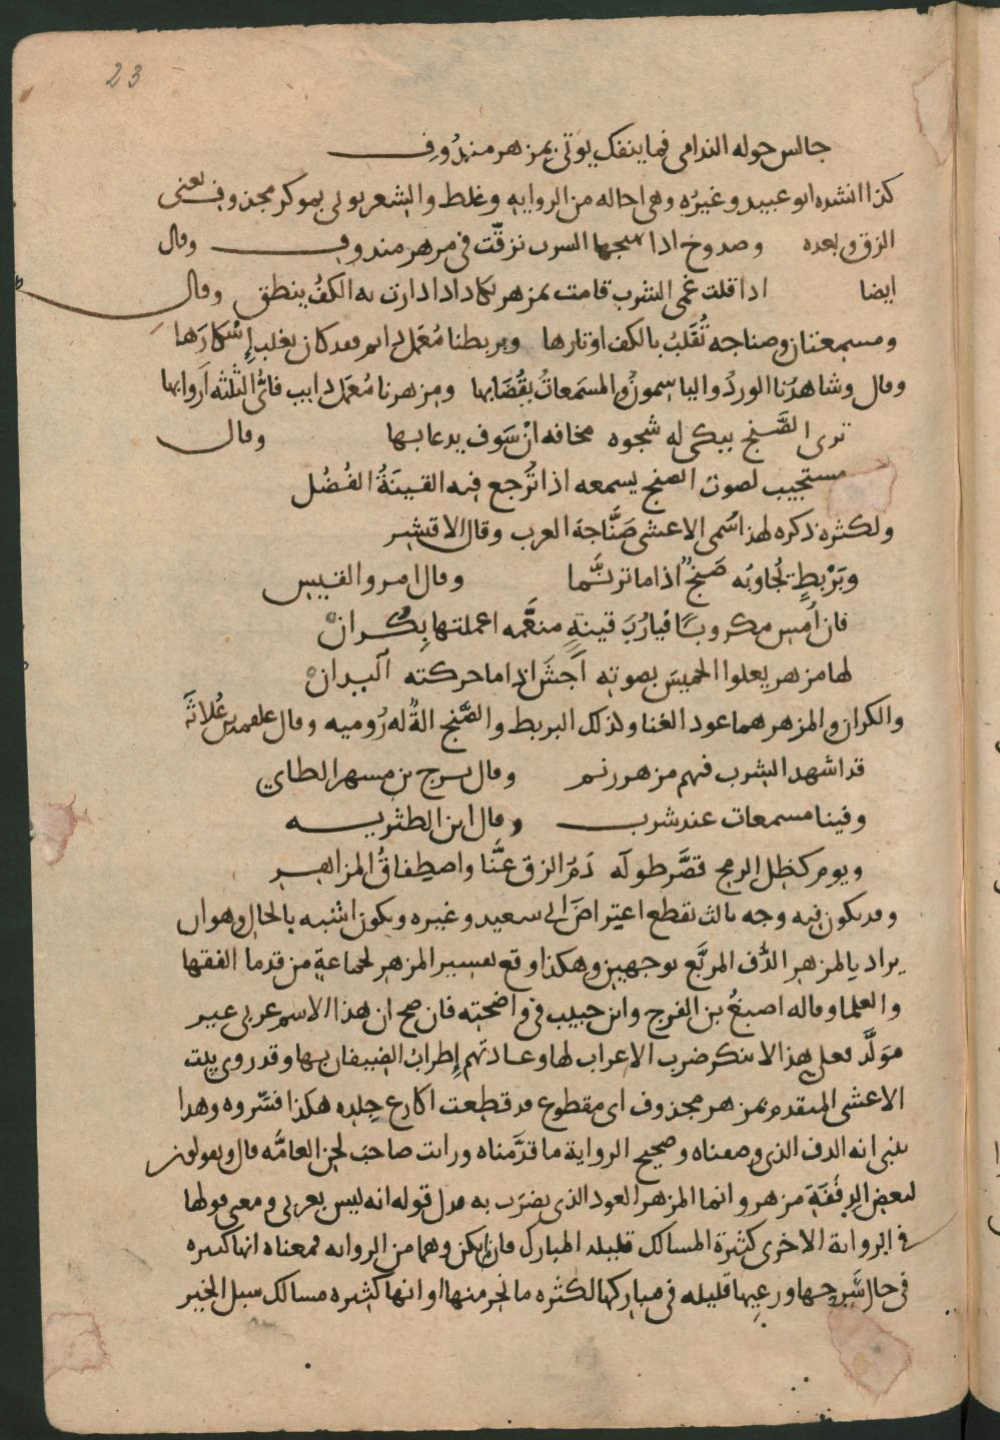 23
جالس حوله الندامى فما ينفك يوتى بمزهر مندوف
كذا انشده ابو عبيد وغيره وهى احاله من الروايه وغلط والشعر يوتى بموكر مجذوف يعنى
الزق وبعده وصدوح اذا يهيجها الشرب ترقت فى مزهر مندوف وقال
ايضا اذا قلت غنى الشرب قامت بمزهر يكاد اذا دارت به الكف ينطق وقال
ومسمعتان وصناجه تُقَلبُ بالكف اوتارها وبربطنا مُعَمل دايم فقد كان يغلب إسْكارَها
وقال وشاهدُنا الوردُ والياسمونُ والمسمعاتُ بقُصَّابها ومزهرنا مُعمَل دايب فاىُّ الثلثه اَروابها
ترى الصَّنج يبكى له شجوه مخافه انْ سَوف يدعا بها وقال
مستجيب لصوت الصنج يسمعه اذا تُرجع فيه القينَةُ الفُضُل
ولكثره ذكره لهذا سُمى الاعشى صَنَّاجة العرب وقال الاقيشر
وبَرْبطٍ تُجاوبُه صَنجٌ اذا ما ترنَّما وقال امرو القيس
فان اُمس مكروبًا فيارُبَ قينةٍ منعَّمه اعملتها بِكُرانْ
لها مزهر يعلوا الخميسَ بصوته اَجَشَ اذا ما حركته اليدانْ
والكران والمزهر هما عود الغنا ولذلك البربط والصَّنج الةٌ له رُوميه وقال علقمه بن عُلاثَه
قد اشهد الشرب فيهم مزهر رنم وقال برج بن مسهر الطاي
وفينا مسمعات عند شرب وقال ابن الطثريه
ويوم كظل الرمح قصَّر طوله دَمُ الزق عنَّا واصطفاقُ المزاهر
وقد يكون فيه وجه ثالث يقطع اعتراضَ ابى سعيد وغيره ويكون اشبه بالحال وهو ان
يراد بالمزهر الدُّف المربَّع بوجهين وهكذا وقع تفسير المزهر لجماعةٍ من قدما الفقها
والعلما وقاله اصبغُ بن الفرج وابن حبيب فى واضحته فان صح ان هذا الاسم عربى غير
مَوَلَّد فعلى هذا لا ينكر ضرب الاعراب لها وعادتهم إطرابُ الضيفان بها وقد روى بيت
الاعشى المتقدم بمزهر مجذوف اى مقطوع قد قطعت اكارع جلده هكذا فسَّروه وهذا
ينبى انه الدف الذى وصفناه وصحيح الرواية ما قدَّمناه ورايت صاحبَ لحن العامَّه قال ويقولون
لبعض الدففَةِ مزهر وانما المزهر العود الذى يضرَب به فدل قوله انه ليس بعربى ومعنى قولها
فى الروايه الاخرى كثيرة المسالك قليله المبارك فان لم يكن وهما من الروايه فمعناه انها كثيره
فى حال سَرحها ورعيها قليله فى مباركها لكثره ما نحر منها او انها كثيره مسالك سبل الخير